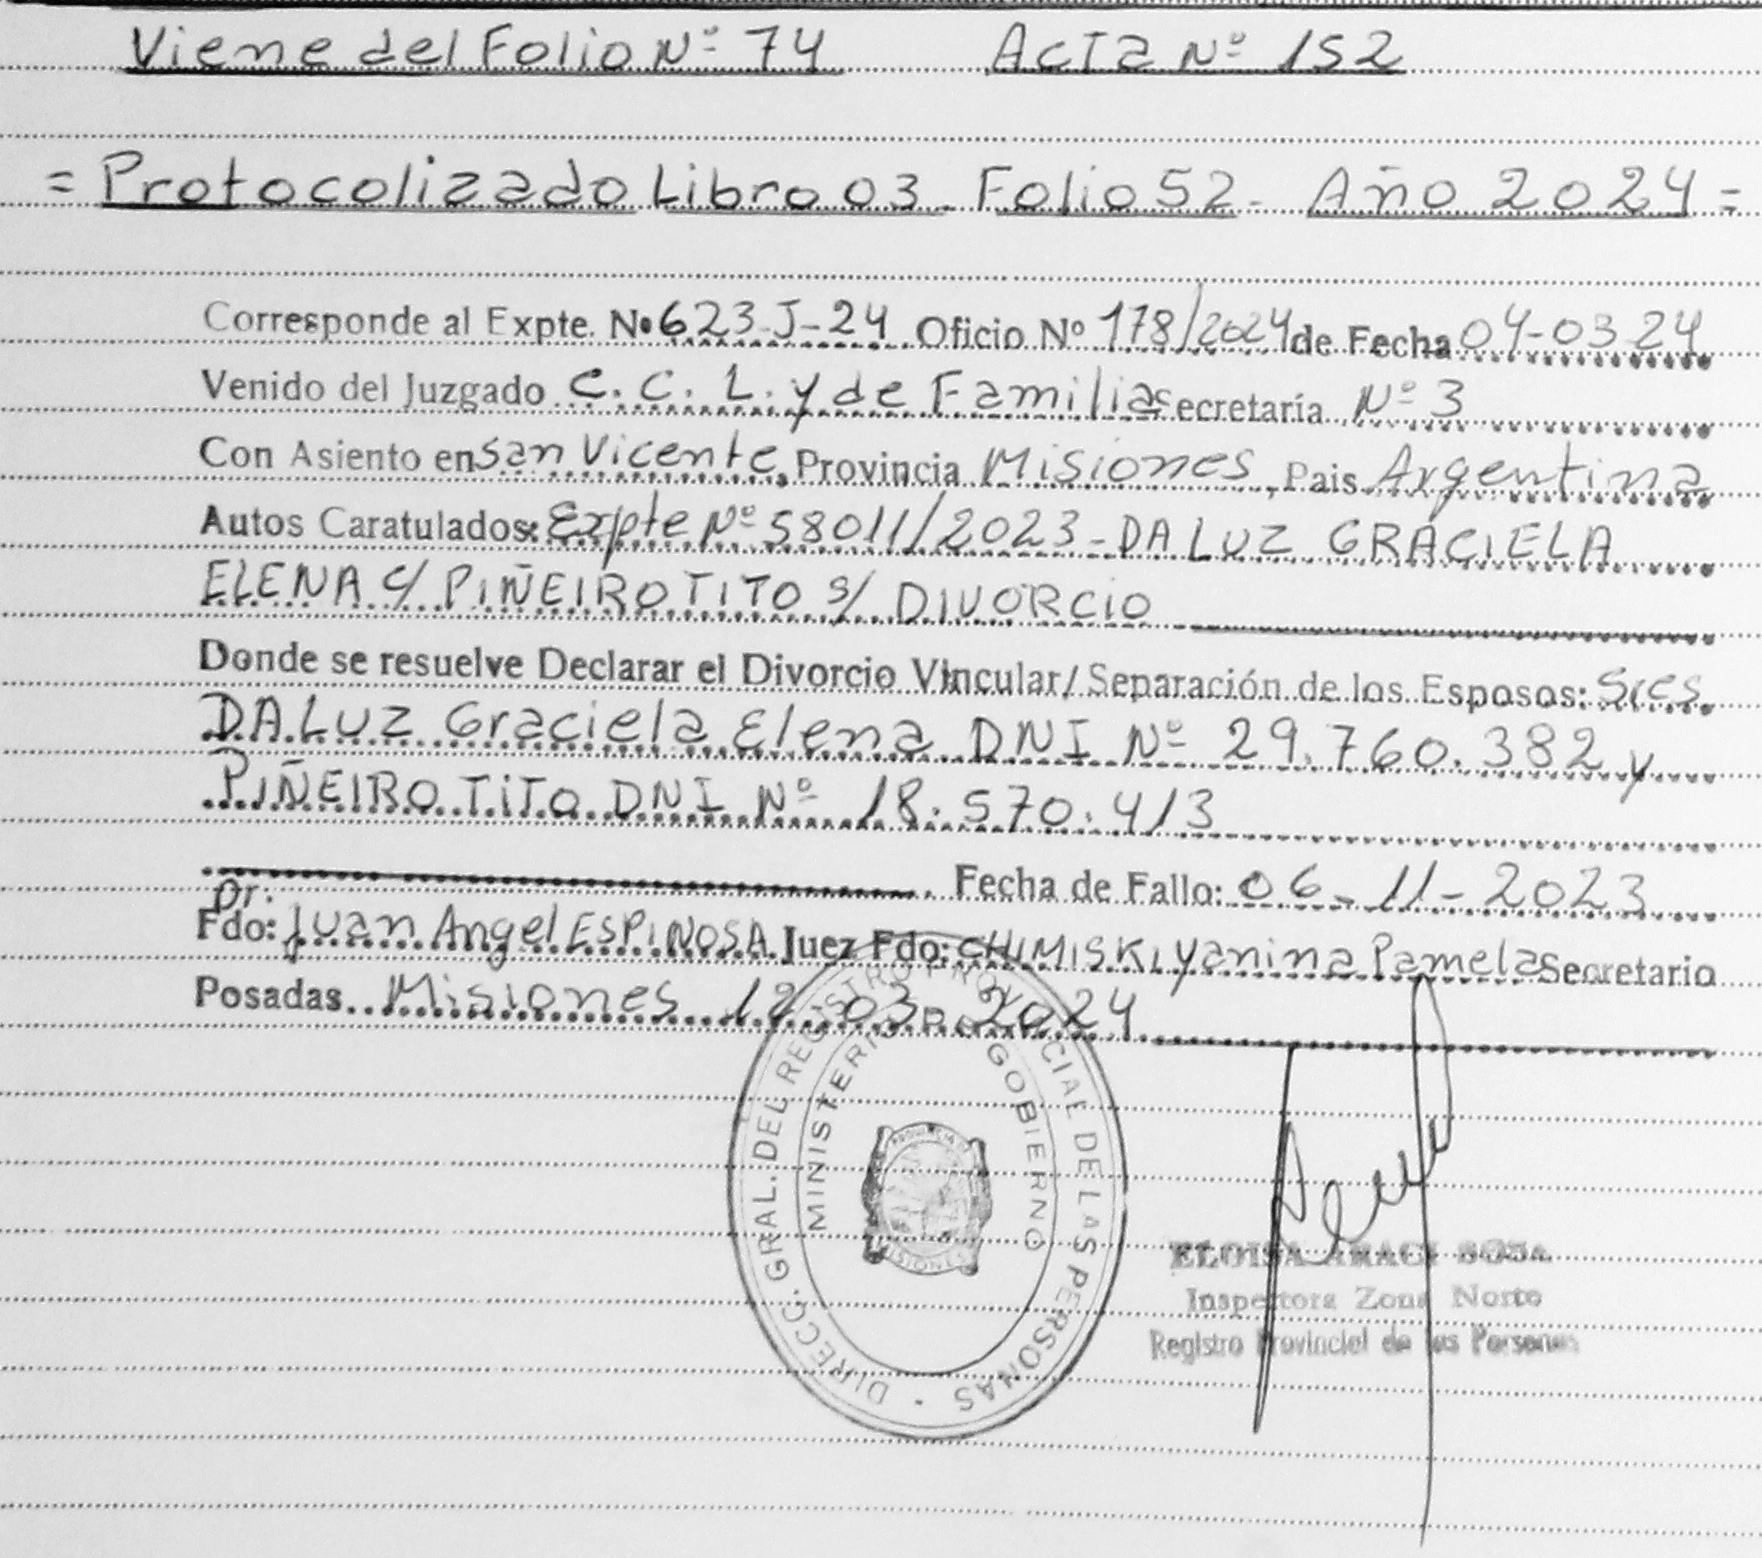 Viene del Folio Nº 74 Acta Nº 152
= Protocolizado Libro 03 - Folio 52 - Año 2024 =
Corresponde al Expte. Nº 623-J-24 Oficio Nº 178/2024 de Fecha 04-03-24
Venido del Juzgado C. C. L. y de Familia Secretaría Nº 3
Con Asiento en San Vicente, Provincia Misiones, Pais Argentina
Autos Caratulados: Expte Nº 58011/2023 - DA LUZ GRACIELA
ELENA C/ PIÑEIRO TITO S/ DIVORCIO
Donde se resuelve Declarar el Divorcio Vincular/ Separación de los Esposos: Sres.
DA LUZ Graciela Elena DNI Nº 29.760.382 y
PIÑEIRO TITO DNI Nº 18.570.413
Fecha de Fallo: 06-11-2023
Dr.
Fdo: Juan Angel ESPINOSA Juez Fdo: CHIMISKI Yanina Pamela Secretario
Posadas Misiones 12 03 2024
DIRECC. GRAL. DEL REGISTRO PROVINCIAL DE LAS PERSONAS
MINISTERIO DE GOBIERNO
PROVINCIA DE
MISIONES
ELOISA ARACI SOSA
Inspectora Zona Norte
Registro Provincial de las Personas